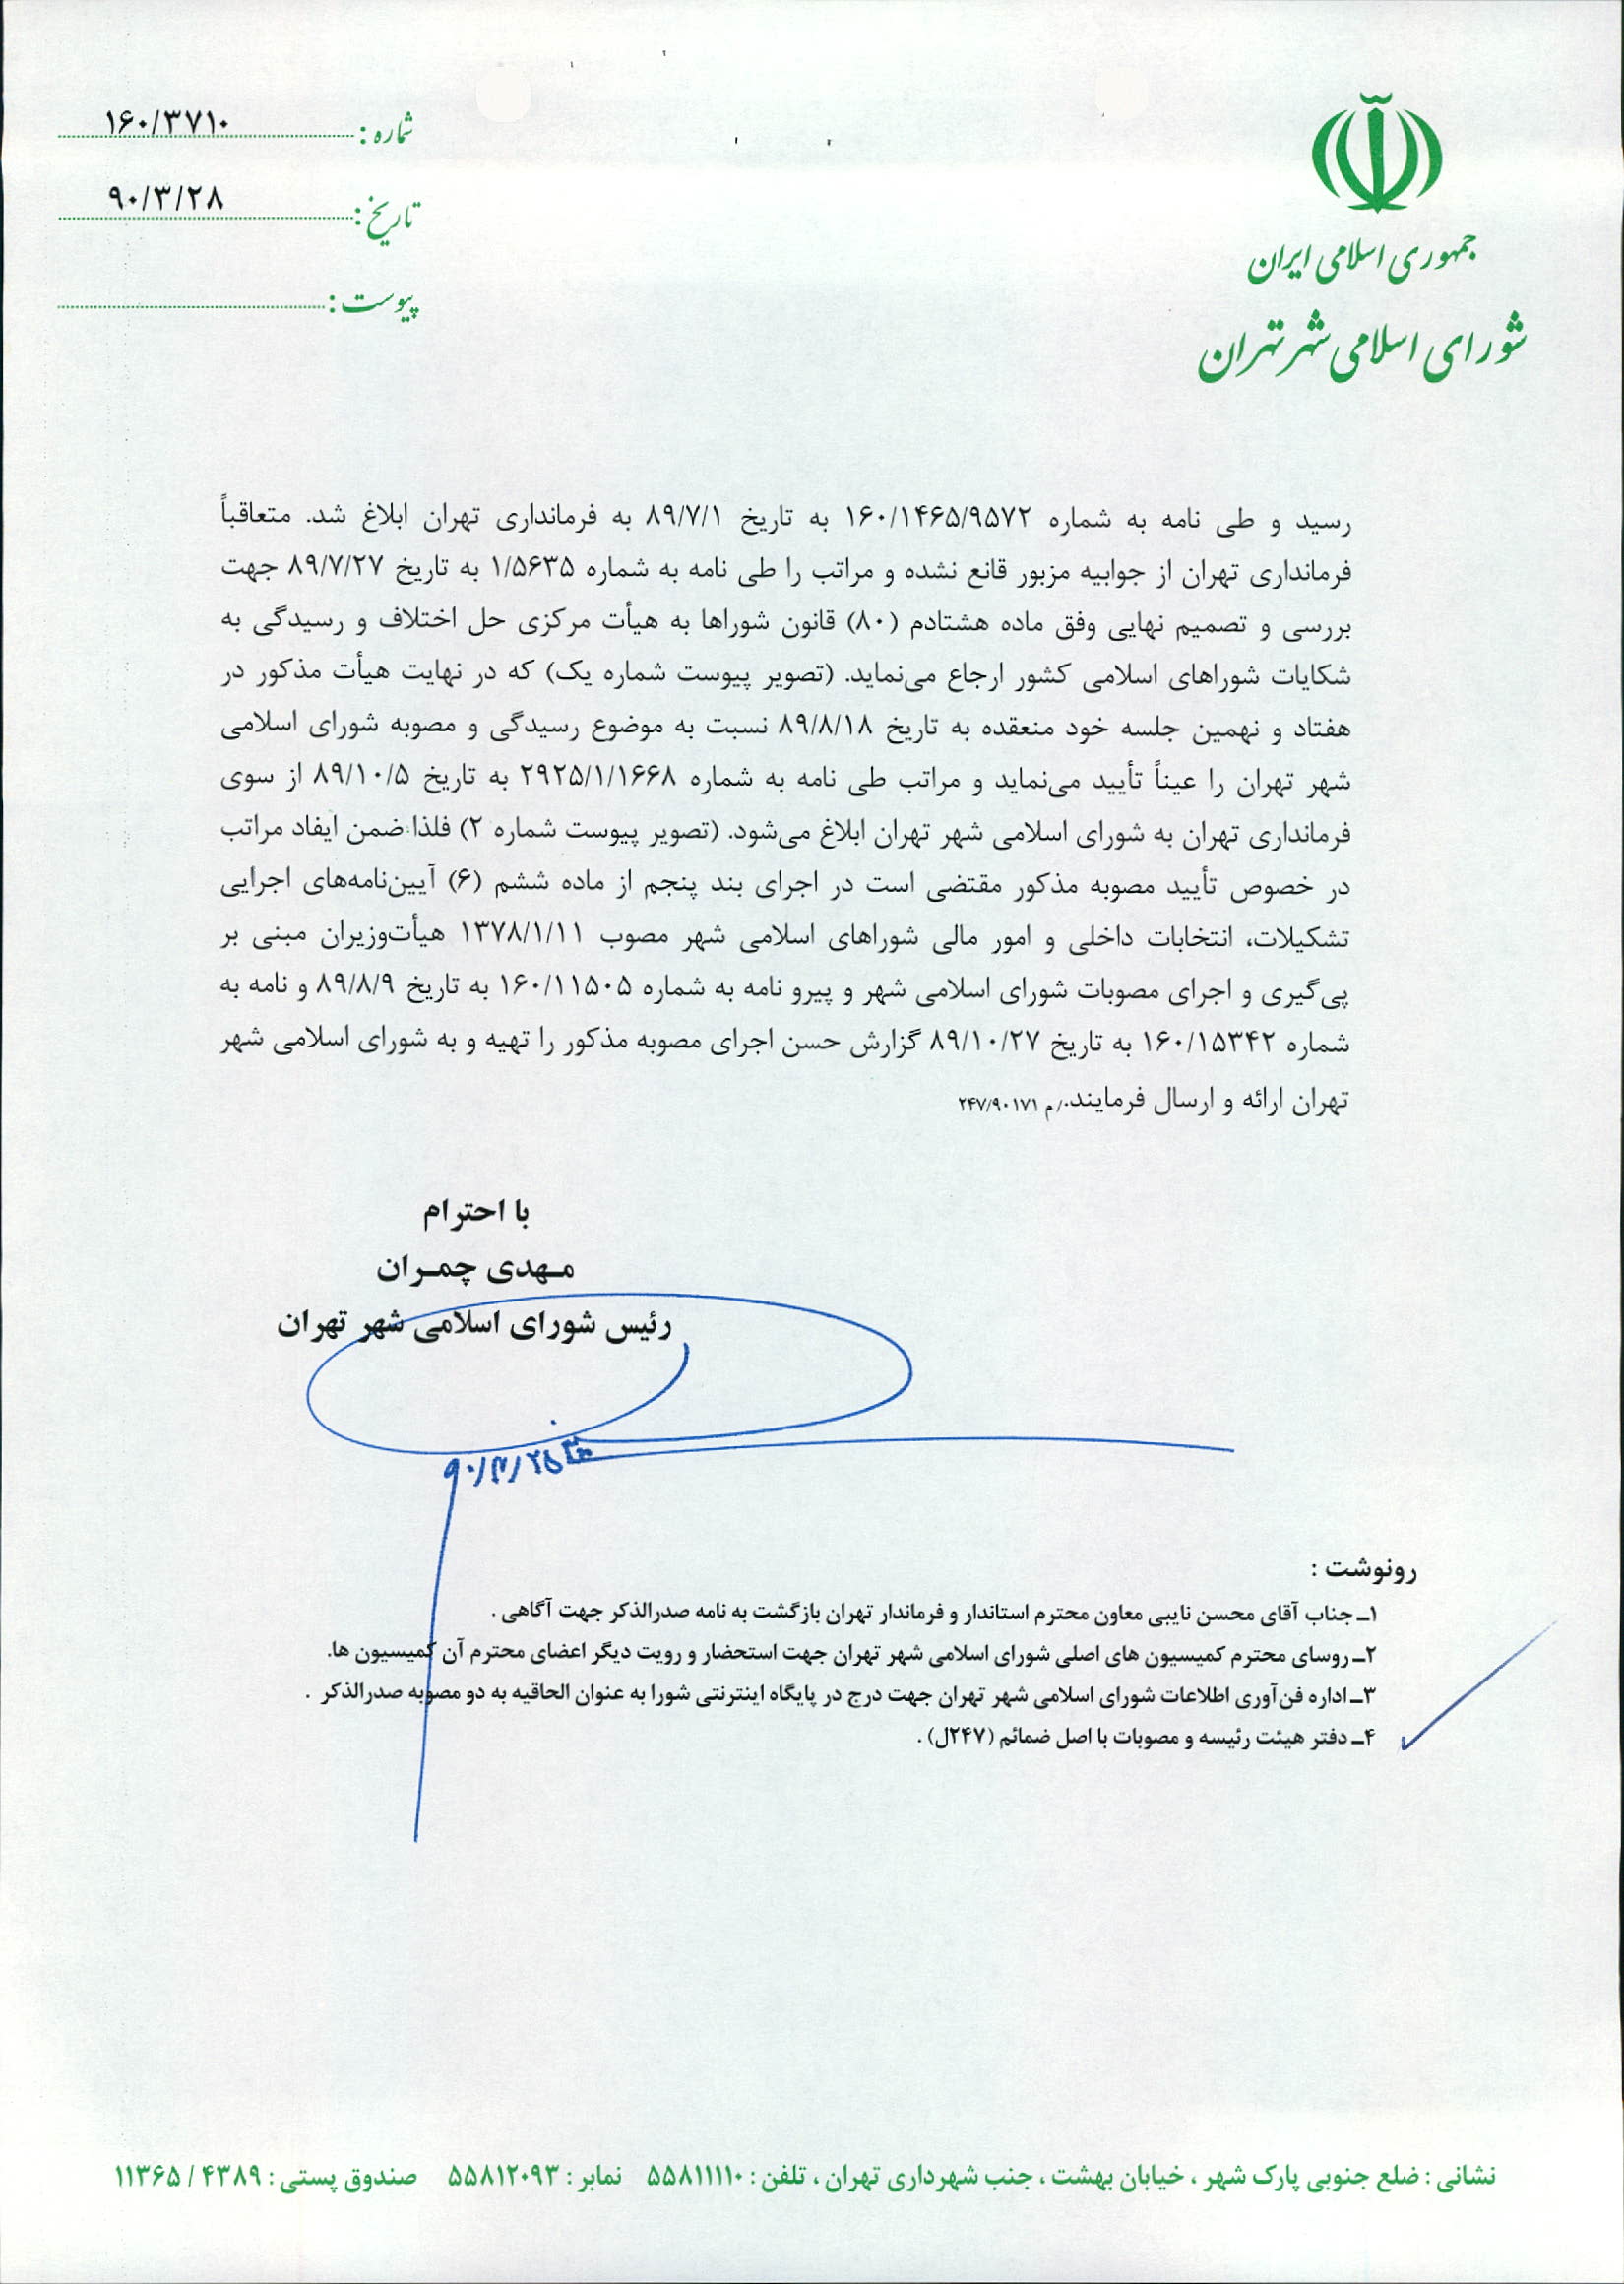 جمهوری اسلامی ایران
شورای اسلامی شهر تهران
شماره : ۱۶۰/۳۷۱۰
تاریخ : ۹۰/۳/۲۸
پیوست :
رسید و طی نامه به شماره ۱۶۰/۱۴۶۵/۹۵۷۲ به تاریخ ۸۹/۷/۱ به فرمانداری تهران ابلاغ شد. متعاقباً
فرمانداری تهران از جوابیه مزبور قانع نشده و مراتب را طی نامه به شماره ۱/۵۶۳۵ به تاریخ ۸۹/۷/۲۷ جهت
بررسی و تصمیم نهایی وفق ماده هشتادم (۸۰) قانون شوراها به هیأت مرکزی حل اختلاف و رسیدگی به
شکایات شوراهای اسلامی کشور ارجاع می‌نماید. (تصویر پیوست شماره یک) که در نهایت هیأت مذکور در
هفتاد و نهمین جلسه خود منعقده به تاریخ ۸۹/۸/۱۸ نسبت به موضوع رسیدگی و مصوبه شورای اسلامی
شهر تهران را عیناً تأیید می‌نماید و مراتب طی نامه به شماره ۲۹۲۵/۱/۱۶۶۸ به تاریخ ۸۹/۱۰/۵ از سوی
فرمانداری تهران به شورای اسلامی شهر تهران ابلاغ می‌شود. (تصویر پیوست شماره ۲) فلذا ضمن ایفاد مراتب
در خصوص تأیید مصوبه مذکور مقتضی است در اجرای بند پنجم از ماده ششم (۶) آیین‌نامه‌های اجرایی
تشکیلات، انتخابات داخلی و امور مالی شوراهای اسلامی شهر مصوب ۱۳۷۸/۱/۱۱ هیأت‌وزیران مبنی بر
پی‌گیری و اجرای مصوبات شورای اسلامی شهر و پیرو نامه به شماره ۱۶۰/۱۱۵۰۵ به تاریخ ۸۹/۸/۹ و نامه به
شماره ۱۶۰/۱۵۳۴۲ به تاریخ ۸۹/۱۰/۲۷ گزارش حسن اجرای مصوبه مذکور را تهیه و به شورای اسلامی شهر
تهران ارائه و ارسال فرمایند./م ۲۴۷/۹۰۱۷۱
با احترام
مـهدی چمـران
رئیس شورای اسلامی شهر تهران
رونوشت :
۱ـ جناب آقای محسن نایبی معاون محترم استاندار و فرماندار تهران بازگشت به نامه صدرالذکر جهت آگاهی .
۲ـ روسای محترم کمیسیون های اصلی شورای اسلامی شهر تهران جهت استحضار و رویت دیگر اعضای محترم آن کمیسیون ها.
۳ـ اداره فن‌آوری اطلاعات شورای اسلامی شهر تهران جهت درج در پایگاه اینترنتی شورا به عنوان الحاقیه به دو مصوبه صدرالذکر .
۴ـ دفتر هیئت رئیسه و مصوبات با اصل ضمائم (۲۴۷ل) .
نشانی : ضلع جنوبی پارک شهر ، خیابان بهشت ، جنب شهرداری تهران ، تلفن : ۵۵۸۱۱۱۱۰ نمابر : ۵۵۸۱۲۰۹۳ صندوق پستی : ۴۳۸۹ / ۱۱۳۶۵